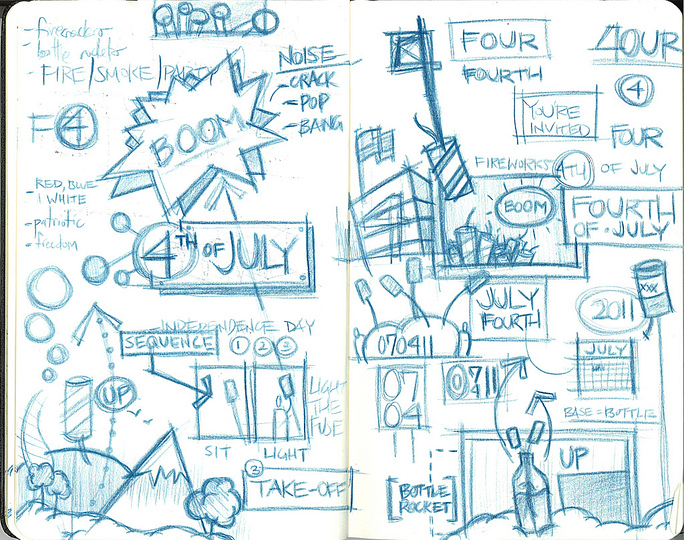 - firecrackers
- bottle
- FIRE/SMOKE/PARTY
F④
BOOM
NOISE
- CRACK
- POP
- BANG
- RED, BLUE
& WHITE
- patriotic
- freedom
4TH OF JULY
INDEPENDENCE DAY
SEQUENCE
1 2 3
UP
LIGHT
THE
FUSE
SIT
LIGHT
3
TAKE-OFF
FOUR
FOURTH
4OUR
4
YOU'RE
INVITED
FOUR
FIREWORKS 4TH OF JULY
BOOM
FOURTH
OF · JULY
JULY
FOURTH
XXX
2011
070411
07
04
0711
JULY
BASE = BOTTLE
UP
[BOTTLE
ROCKET]